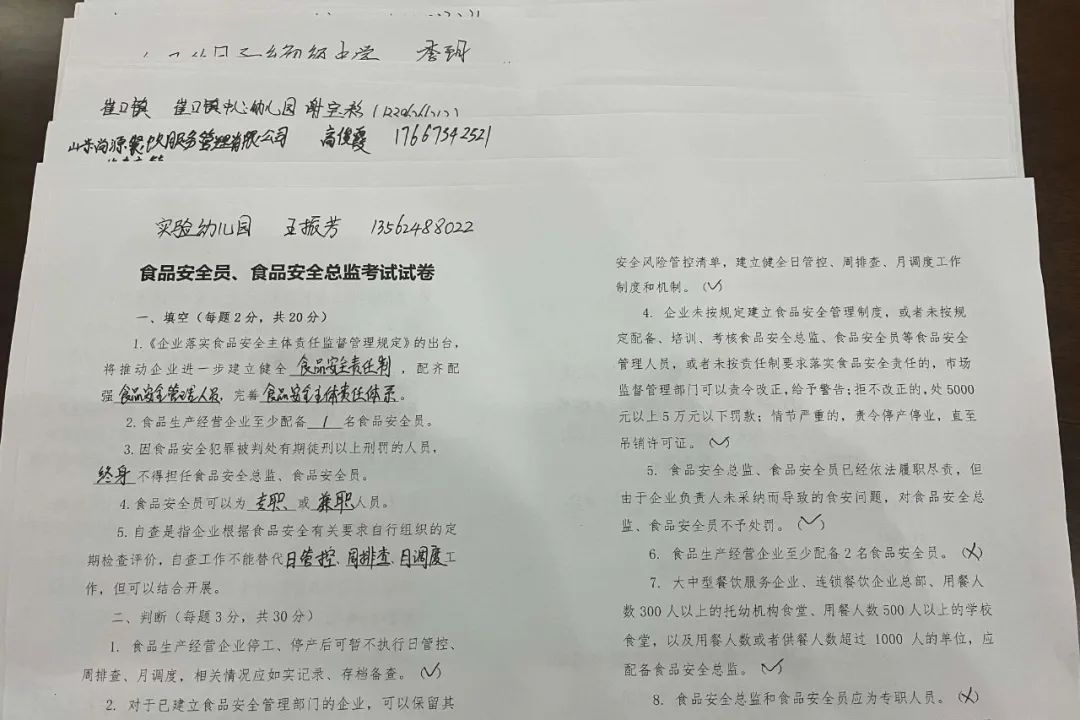 季玥
崔口镇 崔口镇中心幼儿园 谢宝彩
山东尚源餐饮服务管理有限公司 高俊霞 17667542521
实验幼儿园 王振芳 13562488022
食品安全员、食品安全总监考试试卷
一、填空（每题2分，共20分）
1.《企业落实食品安全主体责任监督管理规定》的出台，
将推动企业进一步建立健全 食品安全责任制 ，配齐配
强食品安全管理人员，完善 食品安全主体责任体系。
2. 食品生产经营企业至少配备 1 名食品安全员。
3. 因食品安全犯罪被判处有期徒刑以上刑罚的人员，
终身 不得担任食品安全总监、食品安全员。
4. 食品安全员可以为 专职、或 兼职人员。
5. 自查是指企业根据食品安全有关要求自行组织的定
期检查评价，自查工作不能替代日管控、周排查、月调度工
作，但可以结合开展。
二、判断（每题3分，共30分）
1. 食品生产经营企业停工、停产后可暂不执行日管控、
周排查、月调度，相关情况应如实记录、存档备查。（✓）
2. 对于已建立食品安全管理部门的企业，可以保留其
安全风险管控清单，建立健全日管控、周排查、月调度工作
制度和机制。（✓）
4. 企业未按规定建立食品安全管理制度，或者未按规
定配备、培训、考核食品安全总监、食品安全员等食品安全
管理人员，或者未按责任制要求落实食品安全责任的，市场
监督管理部门可以责令改正，给予警告；拒不改正的，处5000
元以上5万元以下罚款；情节严重的，责令停产停业，直至
吊销许可证。（✓）
5. 食品安全总监、食品安全员已经依法履职尽责，但
由于企业负责人未采纳而导致的食安问题，对食品安全总
监、食品安全员不予处罚。（✓）
6. 食品生产经营企业至少配备2名食品安全员。（×）
7. 大中型餐饮服务企业、连锁餐饮企业总部、用餐人
数300人以上的托幼机构食堂、用餐人数500人以上的学校
食堂，以及用餐人数或者供餐人数超过 1000 人的单位，应
配备食品安全总监。（✓）
8. 食品安全总监和食品安全员应为专职人员。（×）